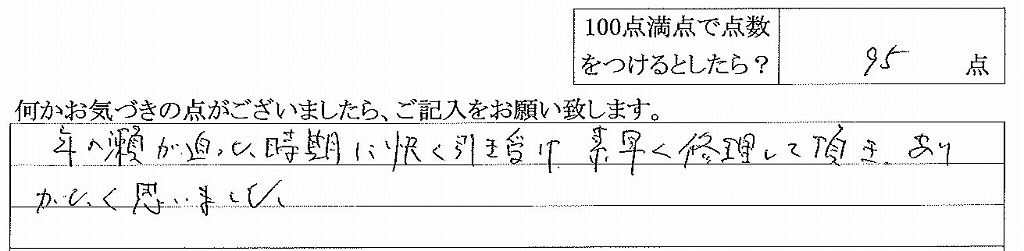 100点満点で点数
をつけるとしたら？
95 点
何かお気づきの点がございましたら、ご記入をお願い致します。
年の瀬が迫った時期に快く引き受け 素早く修理して頂き、あり
がたく思いました。